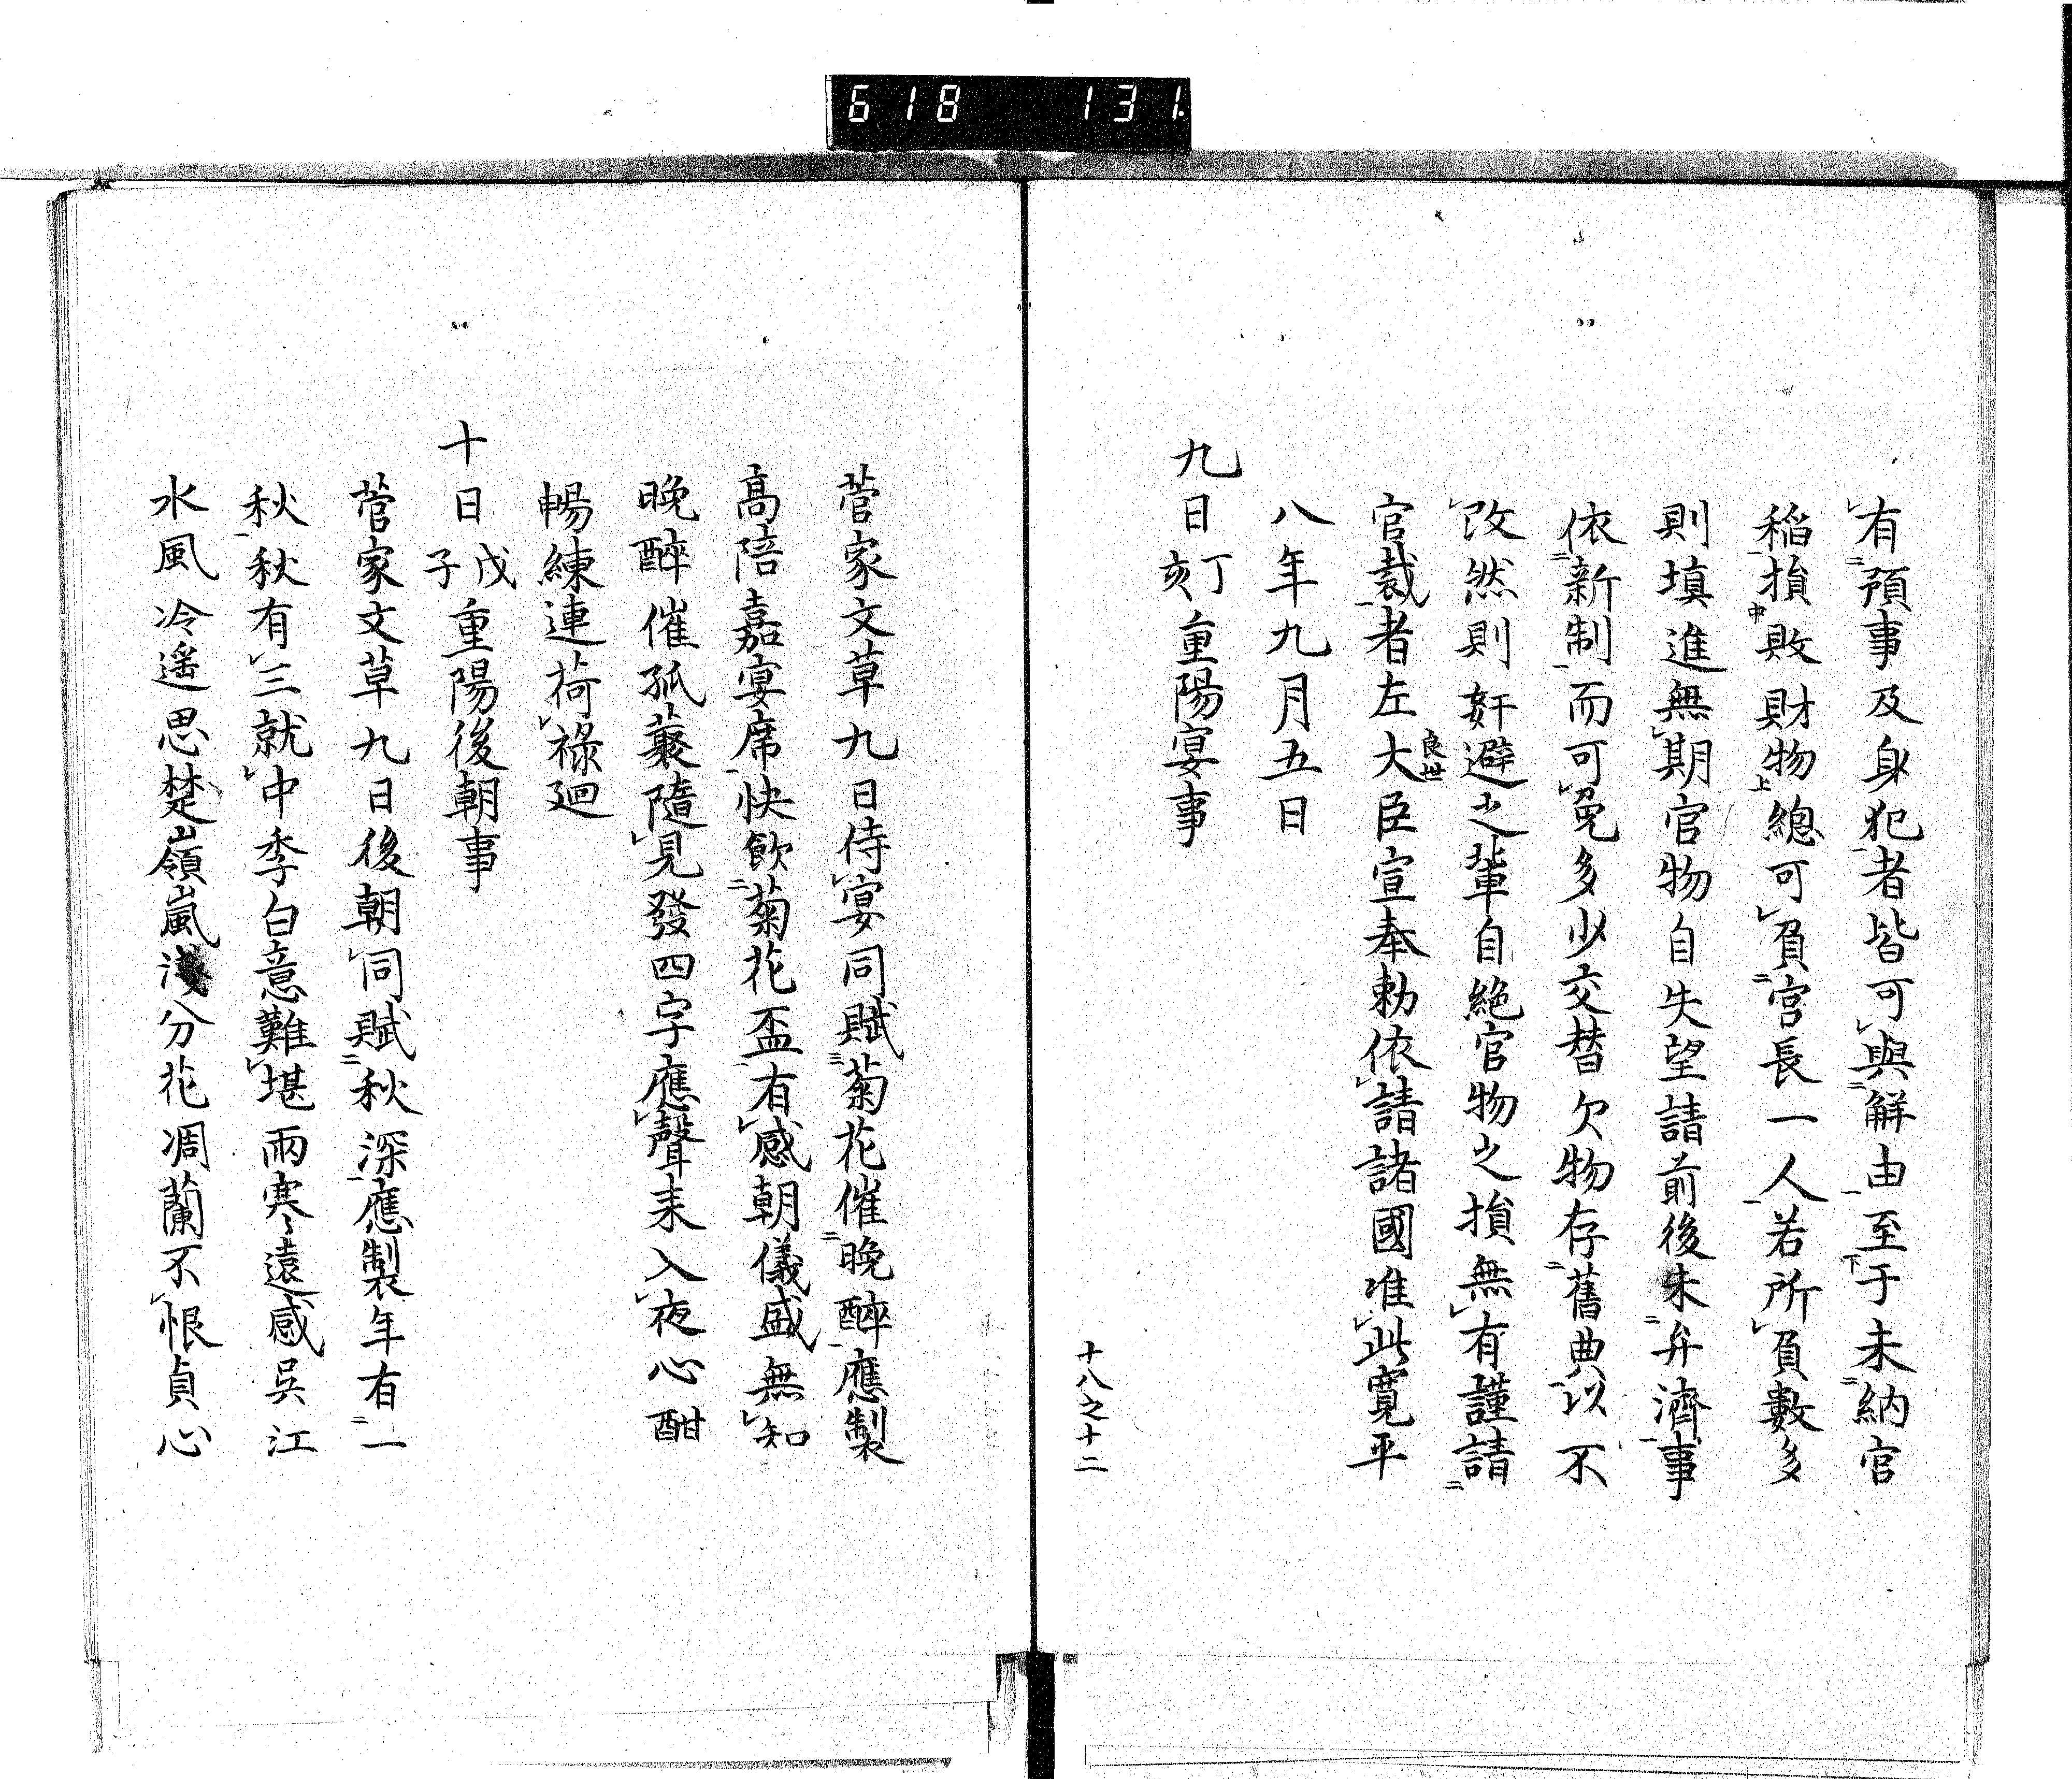 618 131
有預事及身犯者皆可與解由至于未納官
稲損敗財物總可負官長一人若所負數多
則填進無期官物自失望請前後未弁濟事
依新制而可免多少交替欠物存舊典以不
改然則奸避之輩自絶官物之損無有謹請
官裁者左大臣良世宣奉勅依請諸國准此寛平
八年九月五日
九日丁亥重陽宴事
十八之十二
菅家文草九日侍宴同賦菊花催晩醉應製
高陪嘉宴席快飲菊花盃有感朝儀盛無知
晩醉催孤叢隨見發四字應聲来入夜心酣
暢練連荷祿廻
十日戊子重陽後朝事
菅家文草九日後朝同賦秋深應製年有一
秋秋有三就中季白意難堪雨寒〻遠感呉江
水風冷遥思楚嶺嵐淺分花凋蘭不恨貞心